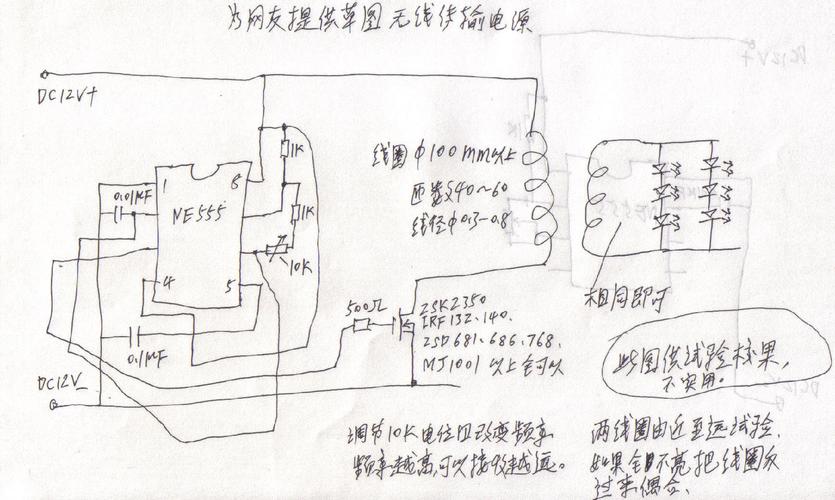 为网友提供草图 无线传输电源
DC12V+
1K
0.01MF
1
8
NE555
1K
10K
4
5
0.1MF
DC12V_
线圈φ100mm以上
匝数40~60
线径φ0.3-0.8
500Ω
2SK2350
IRF132.140.
2SD681.686.768.
MJ1001 以上全可以
相同即可
此图供试验效果,
不实用。
调节10K电位口改变频率
频率越高,可以接收越远。
两线圈由近至远试验.
如果全不亮把线圈反
过来偶合.